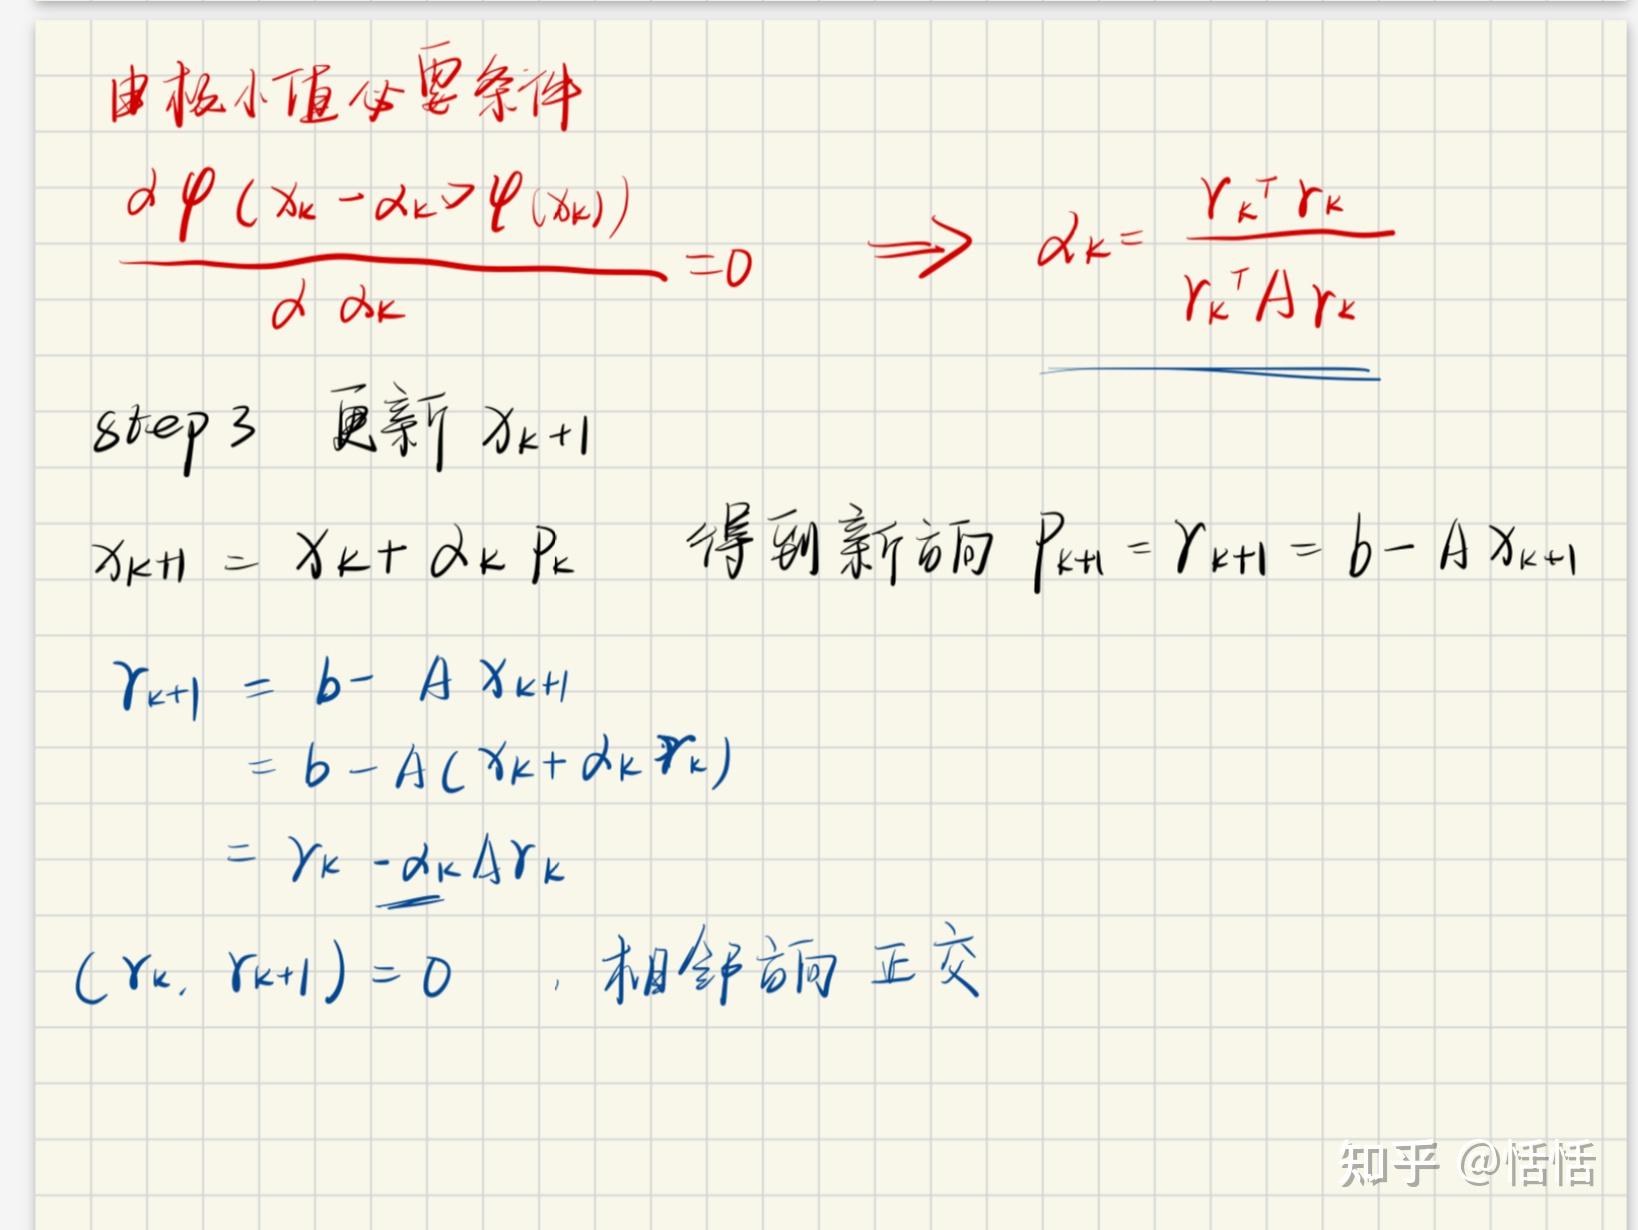 由极小值必要条件
dφ(xₖ - αₖ∇φ(xₖ)) / dαₖ = 0 ⇒ αₖ = rₖᵀrₖ / rₖᵀArₖ
step 3 更新 xₖ₊₁
xₖ₊₁ = xₖ + αₖ pₖ 得到新方向 Pₖ₊₁ = rₖ₊₁ = b - A xₖ₊₁
rₖ₊₁ = b - A xₖ₊₁
= b - A(xₖ + αₖ rₖ)
= rₖ - αₖ A rₖ
(rₖ, rₖ₊₁) = 0 , 相邻方向 正交
知乎 @恬恬